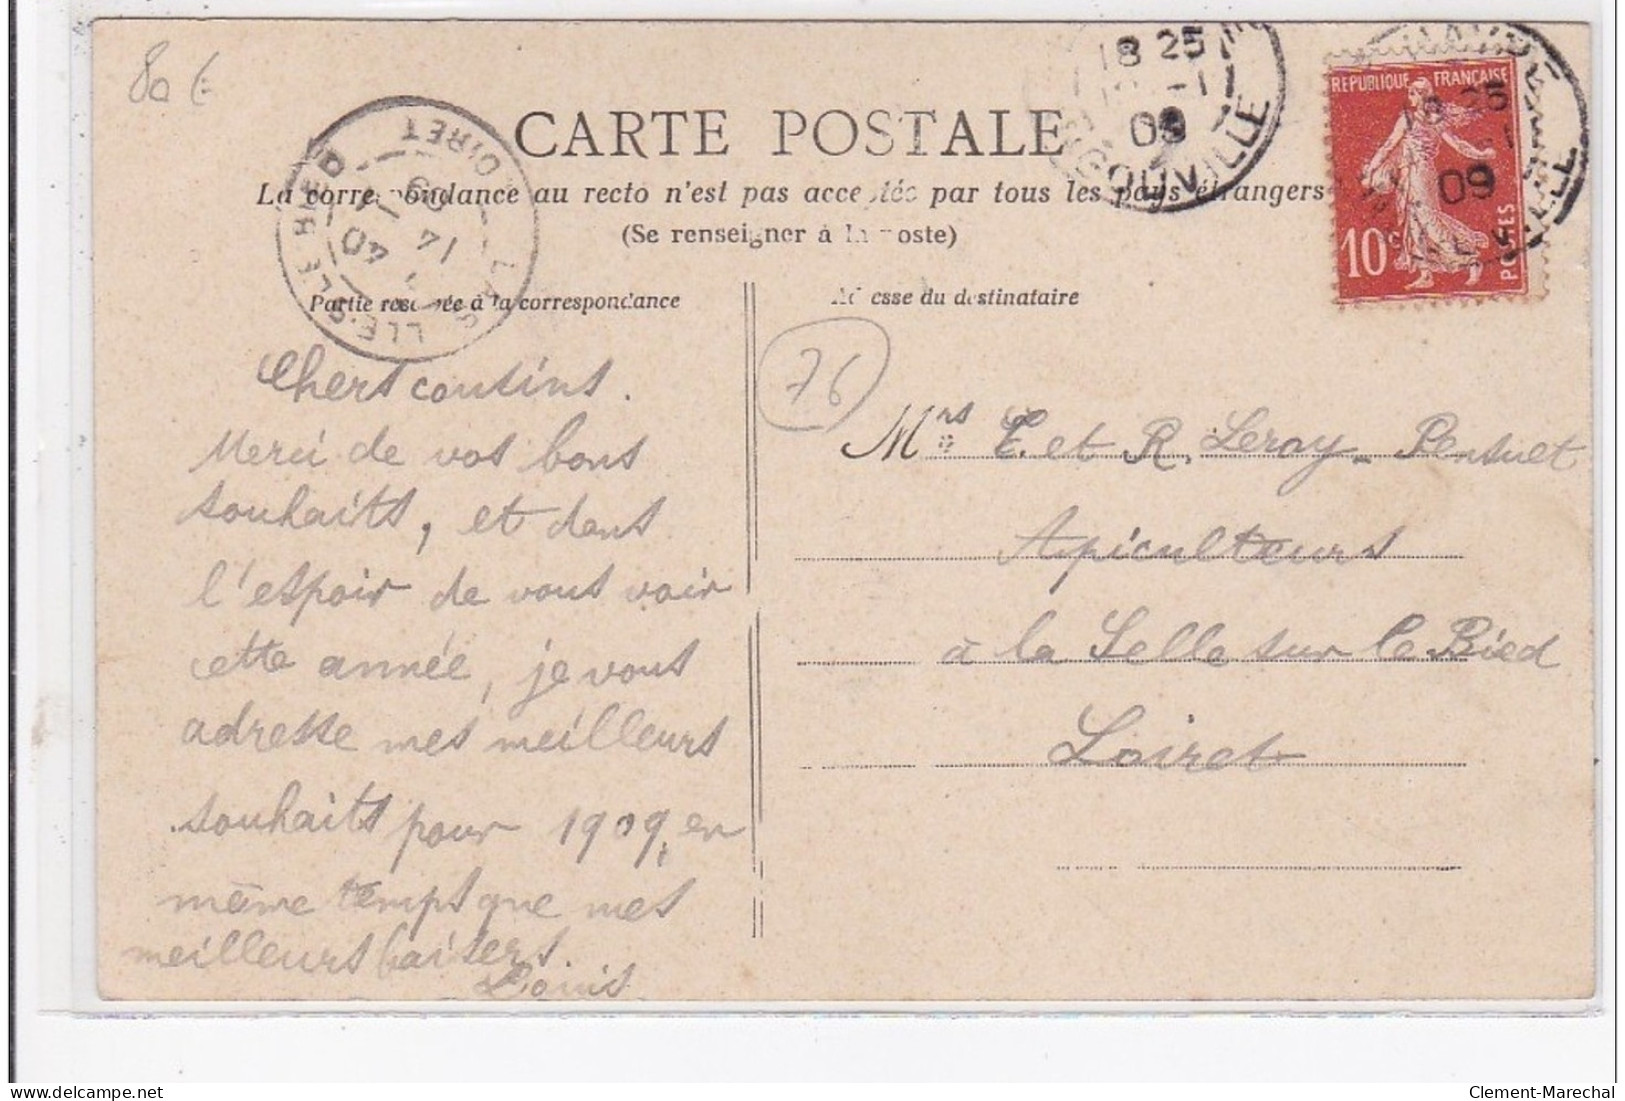 80 €
CARTE POSTALE
La correspondance au recto n'est pas acceptée par tous les pays étrangers
(Se renseigner à la poste)
Partie réservée à la correspondance
Adresse du destinataire
LA SELLE-S-LE BIED
LOIRET
14 -1
09
18 25
-1
09
REPUBLIQUE FRANÇAISE
10c
POSTES
18 25
09
76
Chers cousins.
Merci de vos bons
souhaits, et dans
l'espoir de vous voir
cette année, je vous
adresse mes meilleurs
souhaits pour 1909, en
même temps que mes
meilleurs baisers.
Louis
Mrs E. et R. Leroy - Pensuet
Apiculteurs
à la Selle sur le Bied
Loiret
Clement-Marechal